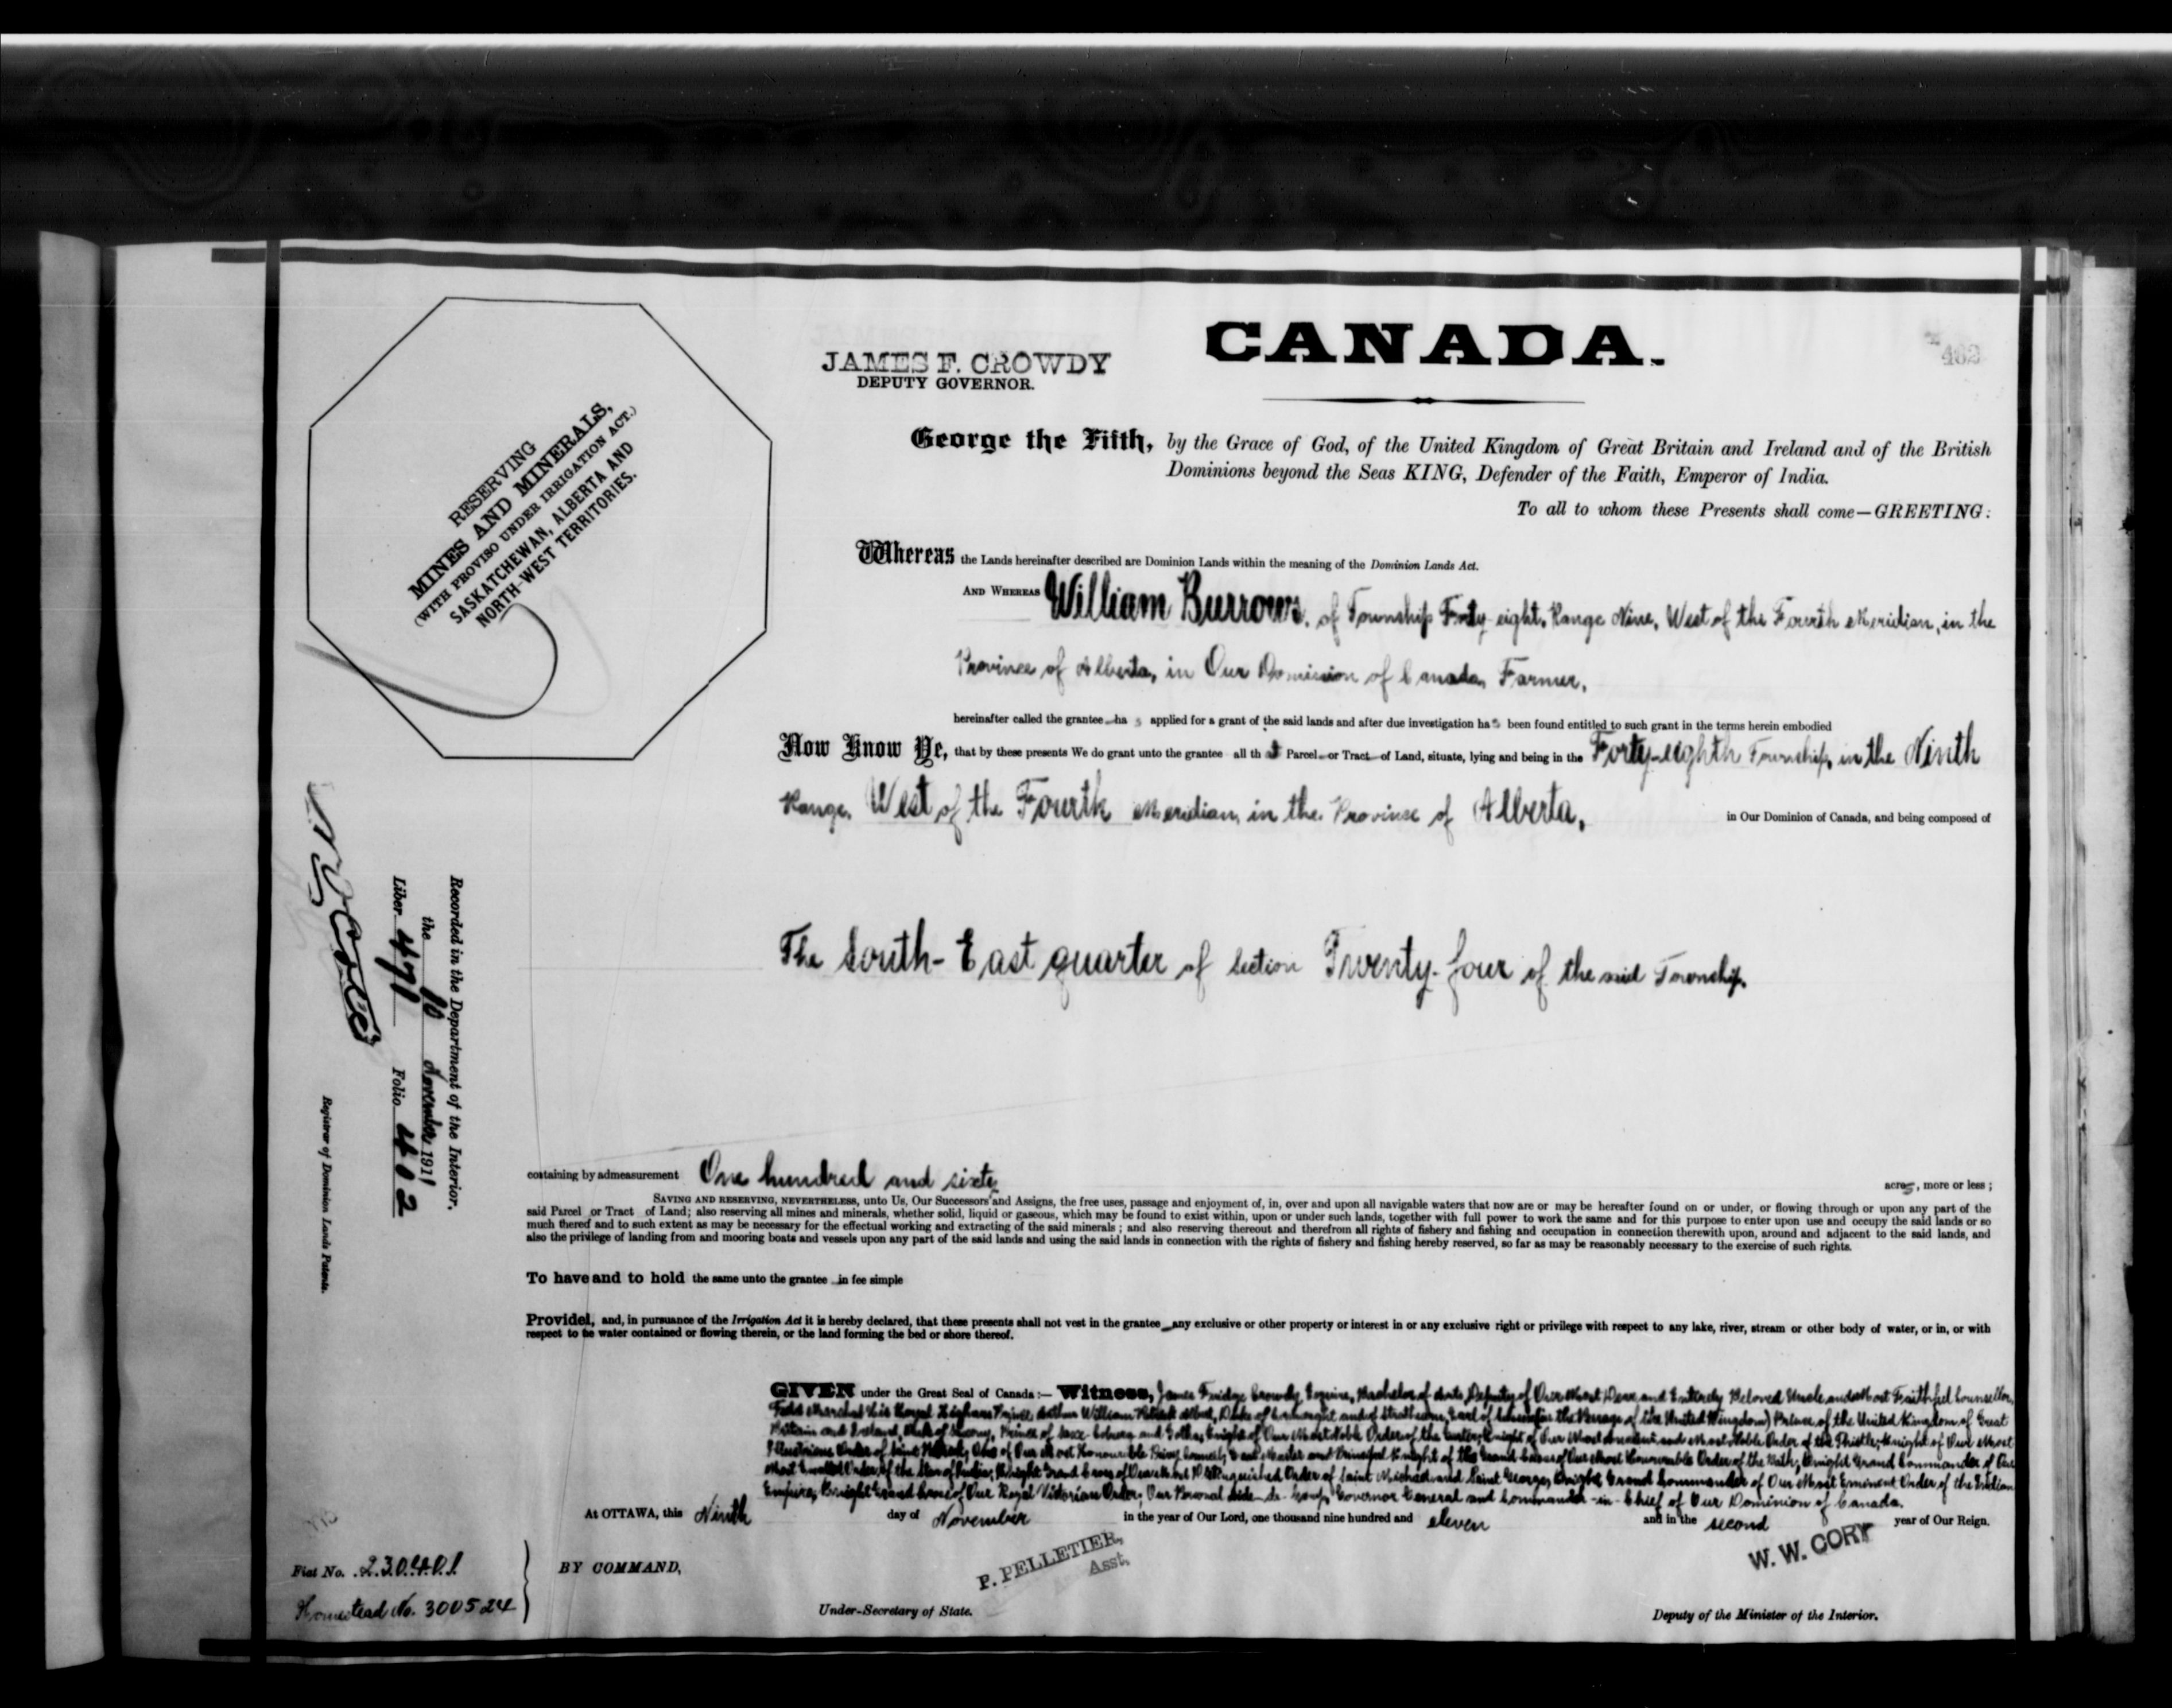 CANADA.
462
JAMES F. CROWDY
DEPUTY GOVERNOR.
RESERVING
MINES AND MINERALS,
(WITH PROVISO UNDER IRRIGATION ACT.)
SASKATCHEWAN, ALBERTA AND
NORTH-WEST TERRITORIES.
George the Fifth, by the Grace of God, of the United Kingdom of Great Britain and Ireland and of the British
Dominions beyond the Seas KING, Defender of the Faith, Emperor of India.
To all to whom these Presents shall come—GREETING:
Whereas the Lands hereinafter described are Dominion Lands within the meaning of the Dominion Lands Act.
AND WHEREAS William Burrows, of Township Forty-eight, Range Nine, West of the Fourth Meridian, in the
Province of Alberta, in Our Dominion of Canada, Farmer,
hereinafter called the grantee has applied for a grant of the said lands and after due investigation has been found entitled to such grant in the terms herein embodied
Now Know Ye, that by these presents We do grant unto the grantee all that Parcel or Tract of Land, situate, lying and being in the Forty-eighth Township, in the Ninth
Range, West of the Fourth Meridian, in the Province of Alberta, in Our Dominion of Canada, and being composed of
The South-East quarter of Section Twenty-four of the said Township.
Recorded in the Department of the Interior,
the 10 November 1911
Liber 491 Folio 402
Registrar of Dominion Lands Patents.
containing by admeasurement One hundred and sixty acres, more or less;
SAVING AND RESERVING, NEVERTHELESS, unto Us, Our Successors and Assigns, the free uses, passage and enjoyment of, in, over and upon all navigable waters that now are or may be hereafter found on or under, or flowing through or upon any part of the
said Parcel or Tract of Land; also reserving all mines and minerals, whether solid, liquid or gaseous, which may be found to exist within, upon or under such lands, together with full power to work the same and for this purpose to enter upon use and occupy the said lands or so
much thereof and to such extent as may be necessary for the effectual working and extracting of the said minerals; and also reserving thereout and therefrom all rights of fishery and fishing and occupation in connection therewith upon, around and adjacent to the said lands, and
also the privilege of landing from and mooring boats and vessels upon any part of the said lands and using the said lands in connection with the rights of fishery and fishing hereby reserved, so far as may be reasonably necessary to the exercise of such rights.
To have and to hold the same unto the grantee in fee simple
Provided, and, in pursuance of the Irrigation Act it is hereby declared, that these presents shall not vest in the grantee any exclusive or other property or interest in or any exclusive right or privilege with respect to any lake, river, stream or other body of water, or in, or with
respect to the water contained or flowing therein, or the land forming the bed or shore thereof.
GIVEN under the Great Seal of Canada:— Witness, James Fridge Crowdy, Esquire, Bachelor of Arts, Deputy of Our Most Dear and Entirely Beloved Uncle and Most Faithful Counsellor,
Field Marshal His Royal Highness Prince Arthur William Patrick Albert, Duke of Connaught and of Strathearn, Earl of Sussex (in the Peerage of the United Kingdom) Prince of the United Kingdom of Great
Britain and Ireland, Duke of Saxony, Prince of Saxe-Coburg and Gotha, Knight of Our Most Noble Order of the Garter; Knight of Our Most Ancient and Most Noble Order of the Thistle; Knight of Our Most
Illustrious Order of Saint Patrick, One of Our Most Honourable Privy Council; Great Master and Principal Knight of the Grand Cross of Our Most Honourable Order of the Bath; Knight Grand Commander of Our
Most Exalted Order of the Star of India; Knight Grand Cross of Our Most Distinguished Order of Saint Michael and Saint George; Knight Grand Commander of Our Most Eminent Order of the Indian
Empire; Knight Grand Cross of Our Royal Victorian Order; Our Personal Aide-de-Camp; Governor General and Commander-in-Chief of Our Dominion of Canada.
At OTTAWA, this Ninth day of November in the year of Our Lord, one thousand nine hundred and eleven and in the second year of Our Reign.
BY COMMAND,
P. PELLETIER,
Asst.
W. W. CORY
Under-Secretary of State.
Deputy of the Minister of the Interior.
Fiat No. 230401
Homestead No. 300524